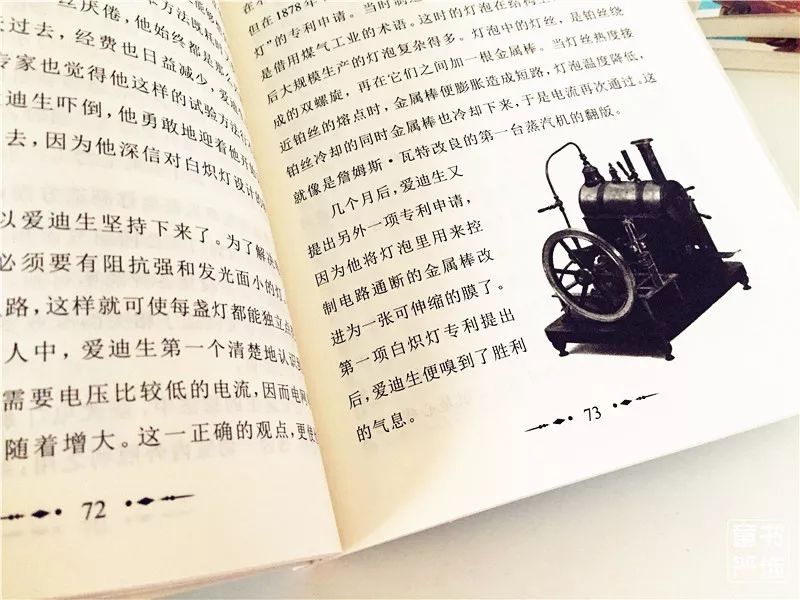 丝厌倦，他始终都是那么
过去，经费也日益减少，爱迪
专家也觉得他这样的试验方法
迪生吓倒，他勇敢地迎着他
去，因为他深信对白炽灯设计的
以爱迪生坚持下来了。为了解决
必须要有阻抗强和发光面小的灯
路，这样就可使每盏灯都能独立
人中，爱迪生第一个清楚地认识
需要电压比较低的电流，因而电
随着增大。这一正确的观点，更
72
但在1878年
灯”的专利申请。当时制造
是借用煤气工业的术语。这时的灯泡在结构上
后大规模生产的灯泡复杂得多。灯泡中的灯丝，是铂丝绕
成的双螺旋，再在它们之间加一根金属棒。当灯丝热度接
近铂丝的熔点时，金属棒便膨胀造成短路，灯泡温度降低，
铂丝冷却的同时金属棒也冷却下来，于是电流再次通过。这
就像是詹姆斯·瓦特改良的第一台蒸汽机的翻版。
几个月后，爱迪生又
提出另外一项专利申请，
因为他将灯泡里用来控
制电路通断的金属棒改
进为一张可伸缩的膜了。
第一项白炽灯专利提出
后，爱迪生便嗅到了胜利
的气息。
73